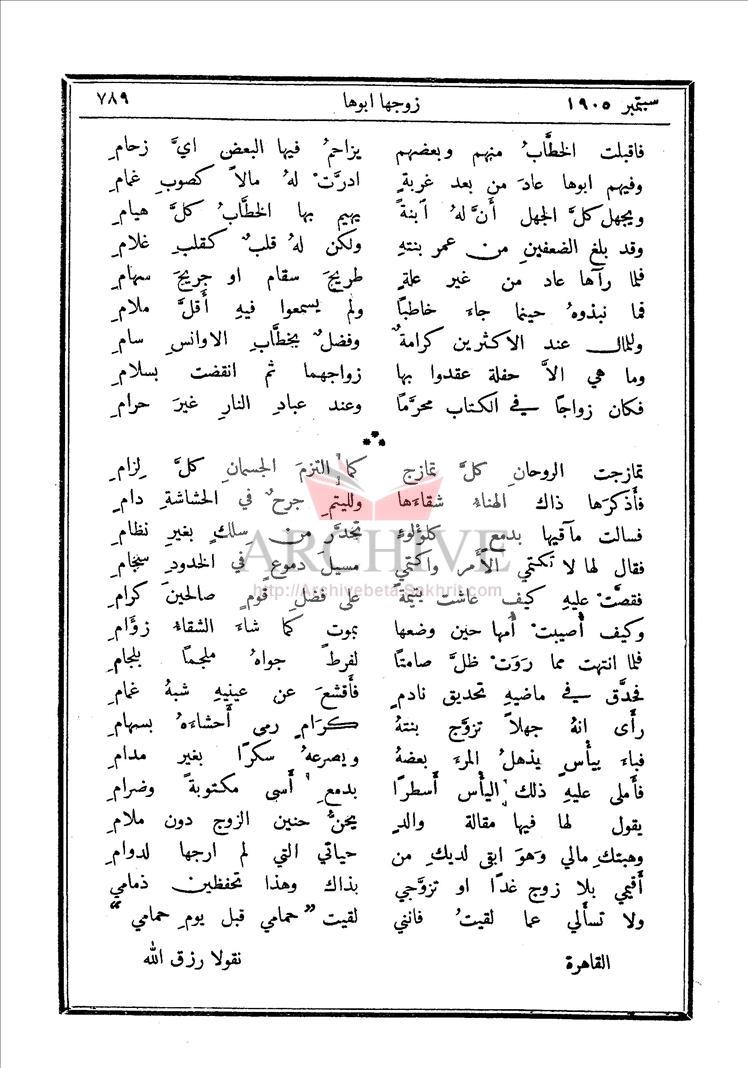 سبتمبر ١٩٠٥ زوجها ابوها ٧٨٩
فاقبلت الخطَّابُ منهم وبعضهم يزاحمُ فيها البعض ايَّ زحامِ
وفيهم ابوها عادَ من بعد غربةٍ ادرَّتْ لهُ مالاً كصوبِ غمامِ
ويجهل كلَّ الجهل أنَّ لهُ ابنةً يهيم بها الخطَّابُ كلَّ هيامِ
وقد بلغ الضعفينِ من عمر بنتهِ ولكن لهُ قلبٌ كقلبِ غلامِ
فلما رآها عاد من غير علةٍ طريحَ سقام او جريحَ سهامِ
فما نبذوهُ حينما جاءَ خاطباً ولم يسمعوا فيهِ أقلَّ ملامِ
وللمال عند الاكثرين كرامةٌ وفضلٌ بخطَّابِ الاوانسِ سامِ
وما هي الاَّ حفلة عقدوا بها زواجهما ثم انقضت بسلامِ
فكان زواجاً في الكتاب محرَّماً وعند عبادِ النارِ غيرَ حرامِ
⁂
تمازجت الروحانِ كلَّ تمازج كما التزمَ الجسمانِ كلَّ لِزامِ
فأذكرَها ذاك الهناءُ شقاءَها ولليتمِ جرحٌ في الحشاشة دامِ
فسالت مآقيها بدمعٍ كلؤلوءٍ تحدَّر من سلكٍ بغيرِ نظامِ
فقال لها لا تكتمي الأمر واكتمي مسيلَ دموعٍ في الخدودِ سجامِ
ARCHIVE
http://Archivebeta.Sakhrit.com
فقصَّتْ عليهِ كيف عاشت يتيمةً على فضلِ قومٍ صالحينَ كرامِ
وكيف أصيبتْ أمها حين وضعها بموت كما شاءَ الشقاءُ زؤَامِ
فلما انتهت مما رَوَتْ ظلَّ صامتاً لفرطِ جواهُ ملجماً بلجامِ
فحدَّق في ماضيهِ تحديق نادمٍ فأقشعَ عن عينيهِ شبهُ غمامِ
رأى انهُ جهلاً تزوَّج بنتهُ كرَامٍ رمى أحشاءَهُ بسهامِ
فباءَ بيأسٍ يذهلُ المرءَ بعضهُ ويصرعهُ سكرًا بغير مدامِ
فأملى عليهِ ذلك اليأس أسطرًا بدمعِ أسى مكتوبةً وضرامِ
يقول لها فيها مقالة والدٍ يحنُّ حنين الزوج دون ملامِ
وهبتكِ مالي وَهوَ ابقى لديكِ من حياتي التي لم ارجها لدوامِ
أقيمي بلا زوج غدًا او تزوَّجي بذاك وهذا تحفظين ذمامي
ولا تسألي عما لقيتُ فانني لقيت "حمامي قبل يومِ حمامي"
القاهرة نقولا رزق الله